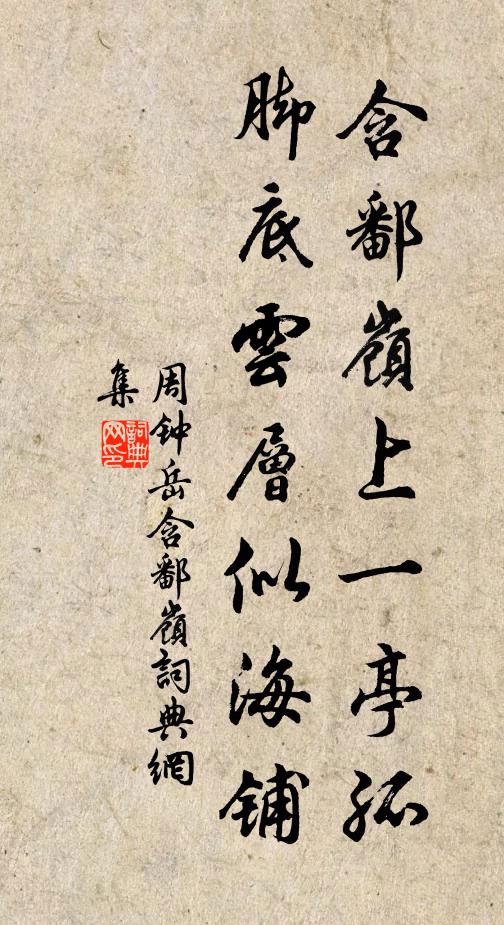 含鄱嶺上一亭孤
脚底雲層似海鋪
周钟岳含鄱嶺詞典網
集
詞典网印